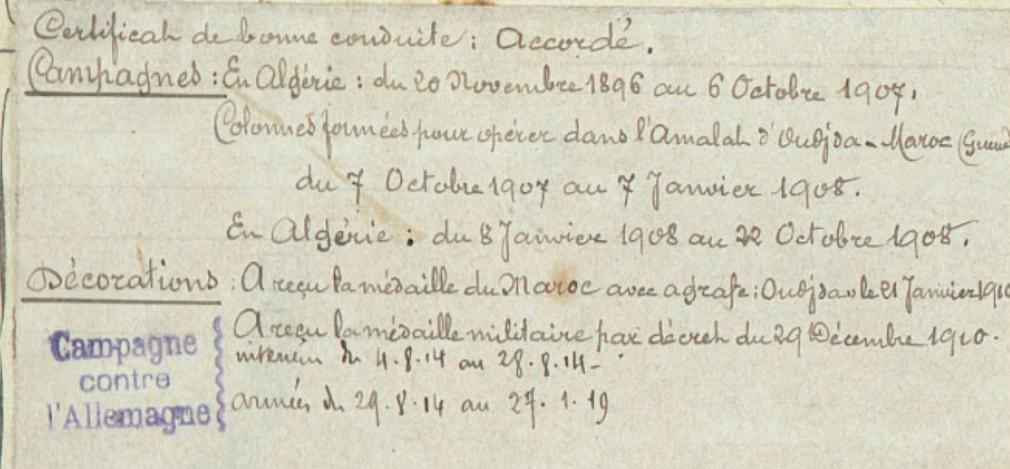 Certificat de bonne conduite : Accordé.
Campagnes : En Algérie : du 20 Novembre 1896 au 6 Octobre 1907.
Colonnes formées pour opérer dans l'Amalat d'Oudjda - Maroc (Guerre
du 7 Octobre 1907 au 7 Janvier 1908.
En Algérie : du 8 Janvier 1908 au 22 Octobre 1908.
Décorations : A reçu la médaille du Maroc avec agrafe : Oudjda le 21 Janvier 1910
A reçu la médaille militaire par décret du 29 Décembre 1910.
Campagne contre l'Allemagne
intérieur du 4.8.14 au 28.8.14 -
armées du 29.8.14 au 27.1.19